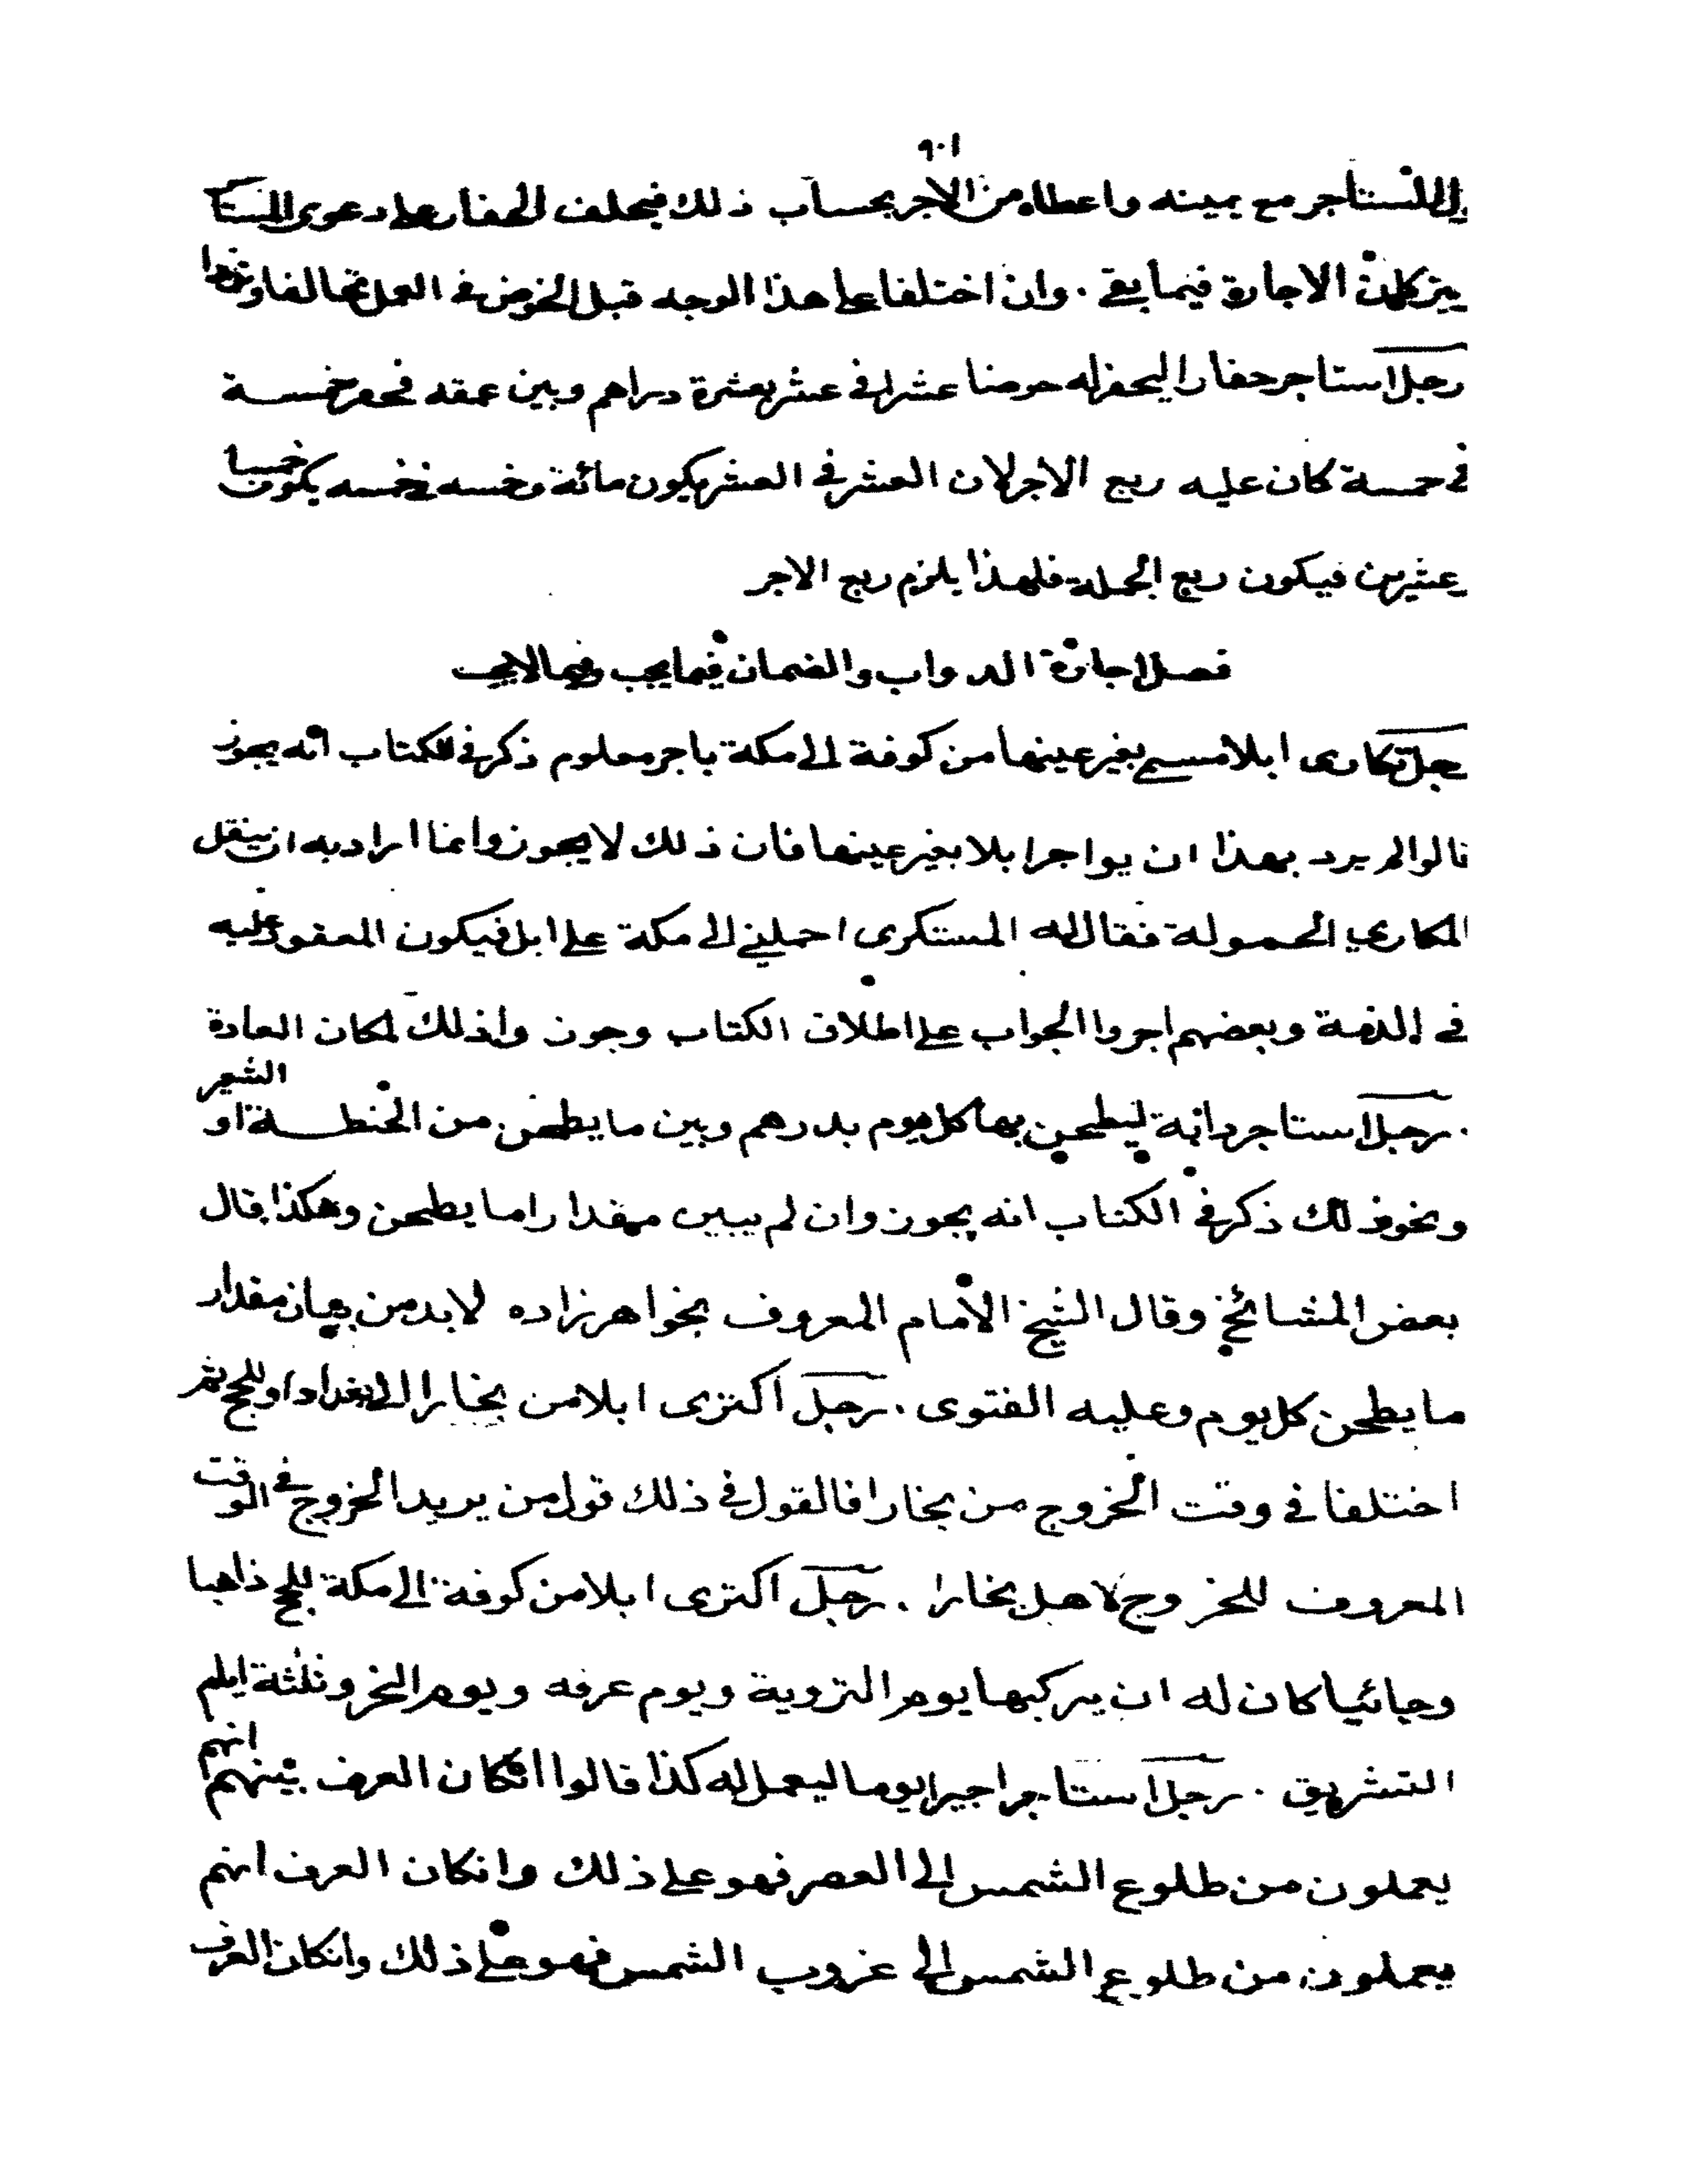 ٩٠١
المستاجر مع يمينه واعطاه من الاجر بحساب ذلك فيحلف الحفار على دعوى المستا
يتركان الاجارة فيما بقى . وان اختلفا على هذا الوجه قبل الخوض فى العمل تحالفا وترادا
رجل استاجر حفارا ليحفر له حوضا عشرا فى عشر بعشرة دراهم وبين عمقه فحفر خمسة
فى خمسة كان عليه ربع الاجر لان العشر فى العشر يكون مائة وخمسه فى خمسه يكون خمسا
عشرين فيكون ربع الجملة فلهذا يلزم ربع الاجر
فصل اجارة الدواب والضمان فيما يجب وفيما لا يجب
رجل تكارى ابلا مسمى بغير عينها من كوفة الى مكة باجر معلوم ذكر فى الكتاب انه يجوز
قالوا لم يرد بهذا ان يواجر ابلا بغير عينها فان ذلك لا يجوز وانما اراد به ان يتقبل
المكاري الحمولة فقال له المستكرى احملني الى مكة على ابل فيكون المعقود عليه
فى الذمة وبعضهم اجروا الجواب على اطلاق الكتاب وجوزوا ذلك لمكان العادة
. رجل استاجر دابة ليطحن بها كل يوم بدرهم وبين ما يطحن من الحنطة او الشعير
ونحو ذلك ذكر فى الكتاب انه يجوز وان لم يبين مقدار ما يطحن وهكذا قال
بعض المشائخ وقال الشيخ الامام المعروف بخواهر زاده لا بد من بيان مقدار
ما يطحن كل يوم وعليه الفتوى . رجل اكترى ابلا من بخارا الى بغداد او للحج ثم
اختلفا فى وقت الخروج من بخارا فالقول فى ذلك قول من يريد الخروج فى الوقت
المعروف للخروج لاهل بخارا . رجل اكترى ابلا من كوفة الى مكة للحج ذاهبا
وجائيا كان له ان يركبها يوم التروية ويوم عرفه ويوم النحر وثلثة ايام
التشريق . رجل استاجر اجيرا يوما ليعمل له كذا قالوا انكان العرف بينهم انهم
يعملون من طلوع الشمس الى العصر فهو على ذلك وانكان العرف انهم
يعملون من طلوع الشمس الى غروب الشمس فهو على ذلك وانكان العرف